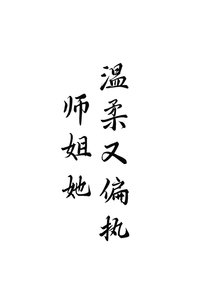 师姐她
温柔又偏执